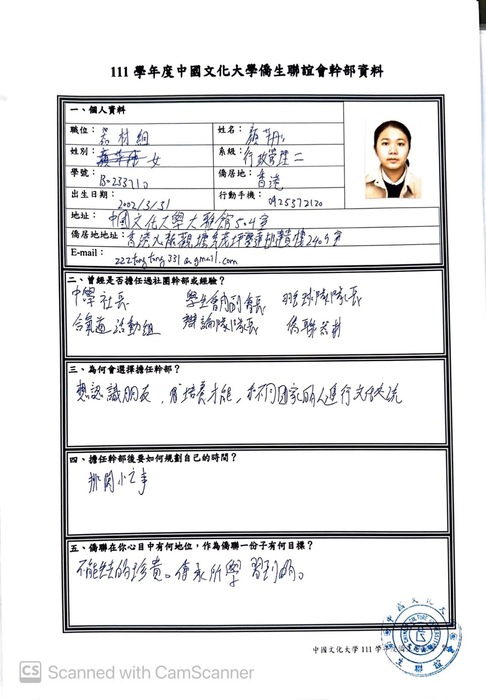 111 學年度中國文化大學僑生聯誼會幹部資料
一、個人資料
職位： 器材組 姓名：
姓別： 女 系級： 行政管理二
學號： B0233710 僑居地： 香港
出生日期： 2002/3/31 行動手機： 0925372120
地址： 中國文化大學大雅館504室
僑居地地址： 香港九龍觀塘
E-mail： zzztongtong331@gmail.com
二、曾經是否擔任過社團幹部或經驗？
中學社長 學生會內副會長 羽球隊隊長
合氣道 活動組 辯論隊隊長 僑聯器材
三、為何會選擇擔任幹部？
想認識朋友，培養才能，和不同國家的人進行文化交流
四、擔任幹部後要如何規劃自己的時間？
五、僑聯在你心目中有何地位，作為僑聯一份子有何目標？
不能缺的珍貴。傳承所學
中國文化大學 111 學年度
CS Scanned with CamScanner